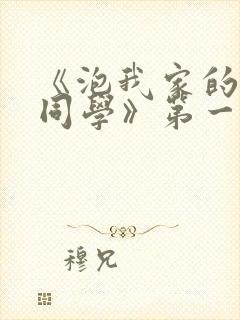 《泡我家的
同學》第一
穆兄